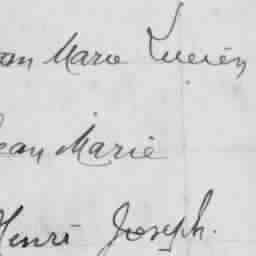 ean Marie Lucien
Jean Marie
Henri Joseph.